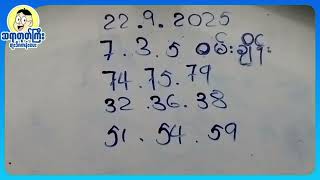 ဆရာတုတ်ကြီး
22.9.2025
7.3.5 ဝမ်းချိန်း
74.75.79
32.36.38
51.54.59